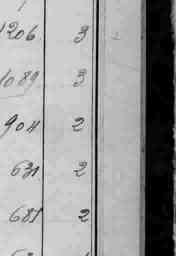 1206 3
1089 3
904 2
631 2
681 2